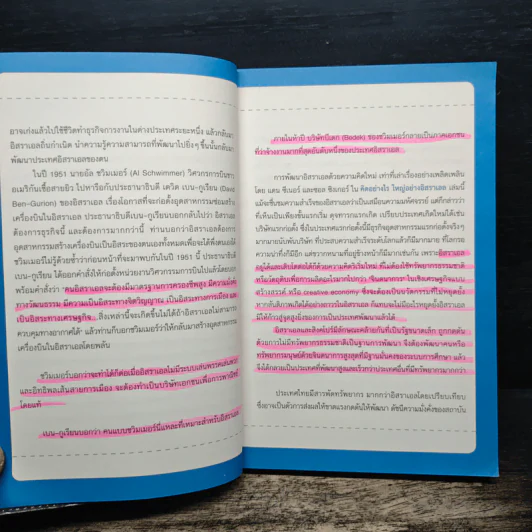 อาจเก่งแล้วไปใช้ชีวิตทำธุรกิจการงานในต่างประเทศระยะหนึ่ง แล้วกลับมา
อิสราเอลถิ่นกำเนิด นำความรู้ความสามารถที่พัฒนาไปยิ่งๆ ขึ้นนั้นกลับมา
พัฒนาประเทศอิสราเอลของตน
ในปี 1951 นายอัล ชวิมเมอร์ (Al Schwimmer) วิศวกรการบินชาว
อเมริกันเชื้อสายยิว ไปหารือกับประธานาธิบดี เดวิด เบน-กูเรียน (David
Ben-Gurion) ของอิสราเอล เรื่องโอกาสที่จะก่อตั้งอุตสาหกรรมซ่อมสร้าง
เครื่องบินในอิสราเอล ประธานาธิบดีเบน-กูเรียนบอกกลับไปว่า อิสราเอล
ต้องการธุรกิจนี้ และต้องการมากกว่านี้ ท่านบอกว่าอิสราเอลต้องการ
อุตสาหกรรมสร้างเครื่องบินเป็นอิสระของตนเองทั้งหมดเพื่อจะได้พึ่งตนเองได้
ชวิมเมอร์ไม่รู้ด้วยซ้ำว่าก่อนหน้าที่จะมาพบกันในปี 1951 นี้ ประธานาธิบดี
เบน-กูเรียน ได้ออกคำสั่งให้ก่อตั้งหน่วยงานวิศวกรรมการบินไปแล้วโดยเอก
พร้อมคำสั่งว่า "คนอิสราเอลจะต้องมีมาตรฐานการครองชีพสูง มีความมั่งคั่ง
ทางวัฒนธรรม มีความเป็นอิสระทางจิตวิญญาณ เป็นอิสระทางการเมือง และ
เป็นอิสระทางเศรษฐกิจ. สิ่งเหล่านี้จะเกิดขึ้นไม่ได้ถ้าอิสราเอลไม่สามารถ
ควบคุมทางอากาศได้" แล้วท่านก็บอกชวิมเมอร์ว่าให้กลับมาสร้างอุตสาหกรรม
เครื่องบินในอิสราเอลโดยพลัน
ชวิมเมอร์บอกว่าจะทำได้ก็ต่อเมื่ออิสราเอลไม่มีระบบเล่นพรรคเล่นพวก
และอิทธิพลเส้นสายการเมือง จะต้องทำเป็นบริษัทเอกชนเพื่อการพาณิชย์
โดยแท้
เบน-กูเรียนบอกว่า คนแบบชวิมเมอร์นี่แหละที่เหมาะสำหรับอิสราเอล
ภายในห้าปี บริษัทบีเดก (Bedek) ของชวิมเมอร์กลายเป็นภาคเอกชน
ที่ว่าจ้างงานมากที่สุดอันดับหนึ่งของประเทศอิสราเอล
การพัฒนาอิสราเอลด้วยความคิดใหม่ เท่าที่เล่าเรื่องอย่างเพลิดเพลิน
โดย แดน ซีเนอร์ และซอล ซิงเกอร์ ใน คิดอย่างไร ใหญ่อย่างอิสราเอล เล่มนี้
แม้จะชื่นชมความสำเร็จของอิสราเอลว่าเป็นเสมือนความมหัศจรรย์ แต่ก็กล่าวว่า
ที่เห็นเป็นเพียงขั้นแรกเริ่ม ดุจทารกแรกเกิด เปรียบประเทศเกิดใหม่ได้เช่น
บริษัทแรกก่อตั้ง ซึ่งในประเทศแรกก่อตั้งนี้มีธุรกิจอุตสาหกรรมแรกก่อตั้งจริงๆ
มากมายนับพันบริษัท ที่ประสบความสำเร็จระดับโลกแล้วก็มีมากมาย ที่โลกรอ
ความน่าทึ่งก็มีอีก แต่ความหมายที่อยู่ข้างหน้าก็มีมากเช่นกัน เพราะอิสราเอล
อยู่ได้และเติบโตต่อไปก็ด้วยความคิดริเริ่มใหม่ ที่ไม่ต้องใช้ทรัพยากรธรรมชาติ
หรือวัตถุดิบเพื่อการผลิตอะไรมากไปกว่า "จินตนาการ" ในเชิงเศรษฐกิจแบบ
สร้างสรรค์ หรือ creative economy ซึ่งจะต้องเป็นนวัตกรรมที่ไม่หยุดยั้ง
หากสันติภาพเกิดได้อย่างถาวรในอิสราเอล ก็แทบจะไม่มีอะไรหยุดยั้งอิสราเอล
มิให้ก้าวสู่จุดสูงยิ่งของการเป็นประเทศพัฒนาแล้วได้
อิสราเอลและสิงคโปร์มีลักษณะคล้ายกันที่เป็นรัฐขนาดเล็ก ถูกกดดัน
ด้วยการไม่มีทรัพยากรธรรมชาติเป็นฐานการพัฒนา จึงต้องพัฒนาคนหรือ
ทรัพยากรมนุษย์ด้วยจินตนาการสูงสุดที่มีฐานมั่นคงของระบบการศึกษา แล้ว
จึงได้กลายเป็นประเทศที่พัฒนาสูงและเร็วกว่าประเทศอื่นที่มีทรัพยากรมากกว่า
ประเทศไทยมีสารพัดทรัพยากร มากกว่าอิสราเอลโดยเปรียบเทียบ
ซึ่งอาจเป็นตัวการส่งผลให้ขาดแรงกดดันให้พัฒนา ดัชนีความมั่งคั่งของสถาบัน